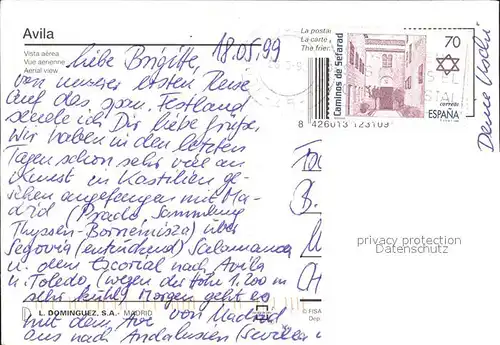 Avila
Vista aérea
Vue aerienne
Aerial view
18.05.99
liebe Brigitte,
von unserer letzten Reise
auf das span. Festland
sende ich Dir liebe Grüße.
Wir haben in den letzten
Tagen schon sehr viel an
Kunst in Kastilien ge-
sehen angefangen mit Ma-
drid (Prado, Sammlung
Thyssen-Bornemisza) über
Segovia (entzückend) Salamanca
u. dem Escorial nach Avila
u. Toledo (wegen der Höhe 1.200 m
sehr kühl) Morgen geht es
mit dem Ave von Madrid
aus nach Andalusien (Sevilla u
Deine Uschi
La posta
La carte
The frien
Caminos de Sefarad
70
correos
ESPAÑA
8 426013 123109
B.
CH
privacy protection
Datenschutz
L. DOMINGUEZ, S.A. - MADRID
© FISA
Dep.